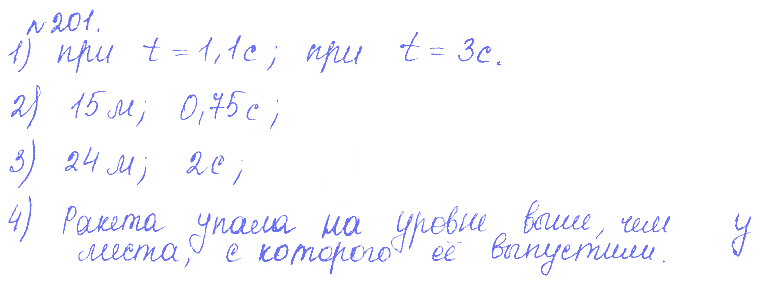 №201.
1) при t = 1,1с; при t = 3с.
2) 15м; 0,75с;
3) 24м; 2с;
4) Ракета упала на уровне выше, чем у
места, с которого её выпустили.